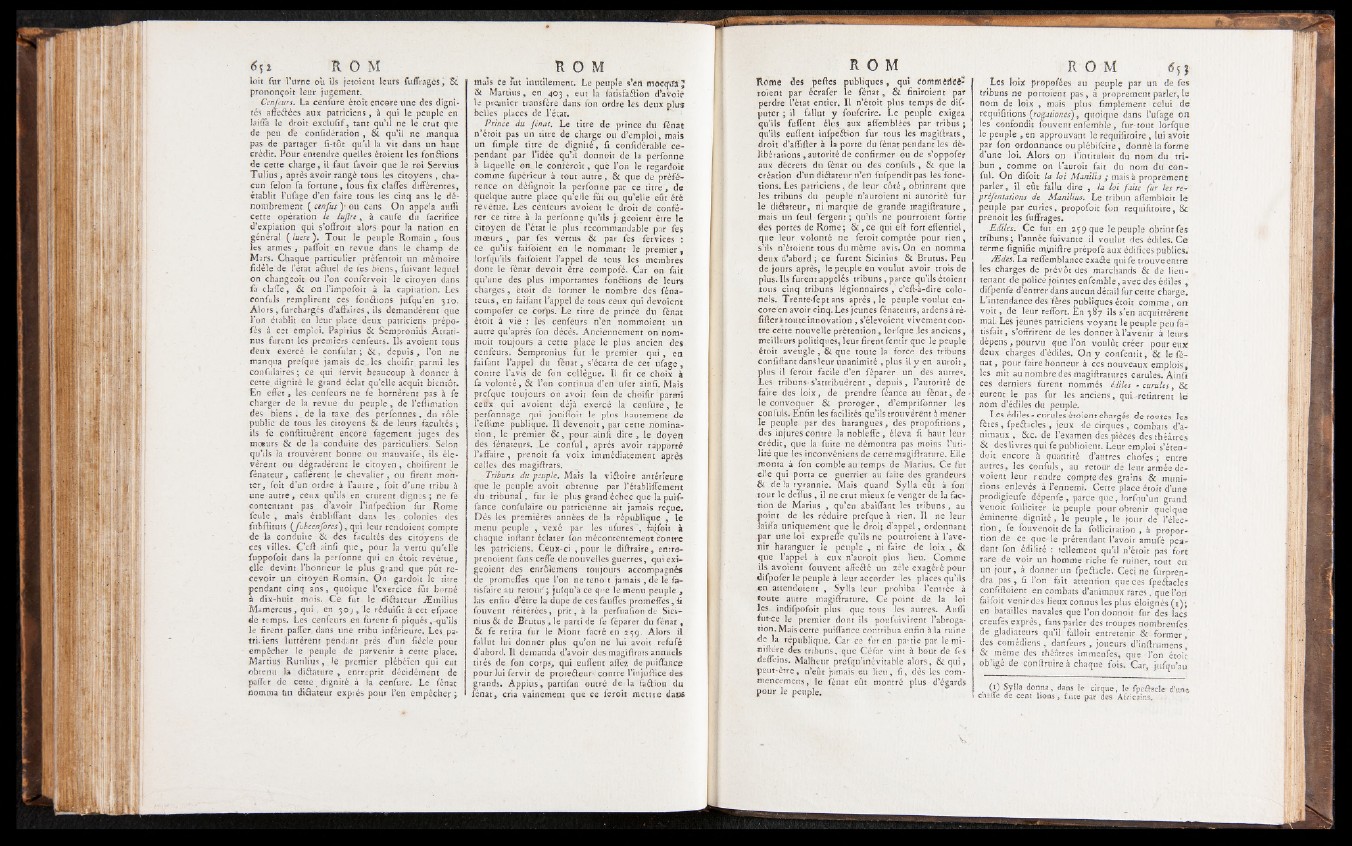 652 R O M
loit sur l'urne où ils jetoient leurs suffrages, &
prononçoit leur jugement.
Censeurs. La censure étoit encore une des digni-
tés affectées aux patriciens, à qui le peuple en
laissa le droit exclusif, tant qu'il ne le crut que
de peu de considération, & qu'il ne manqua
pas de partager si-tôt qu'il la vit dans un haut
crédit. Pour entendre quelles étoient les fonctions
de cette charge, il faut savoir que le roi Servius
Tulius, après avoir rangé tous les citoyens, cha-
cun selon sa fortune, sous six classes différentes,
établit l'usage d'en faire tous les cinq ans le dé-
nombrement (census) ou cens. On appela aussi
cette opération le lustre, à cause du sacrifice
d'expiation qui s'offroit alors pour la nation en
général (luere). Tout le peuple Romain, sous
les armes, passoit en revue dans le champ de
Mars. Chaque particulier présentoit un mémoire
fidèle de l'état actuel de ses biens, suivant lequel
on changeoit ou l'on conservoit le citoyen dans
sa classe, & on l'imposoit à la capitation. Les
consuls remplirent ces fonctions jusqu'en 310.
Alors, surchargés d'affaires, ils demandèrent que
l'on établit en leur place deux patriciens prépo-
sés à cet emploi. Papirius & Sempronius Atrati-
nus furent les premiers censeurs. Ils avoient tous
deux exercé le consulat; &, depuis, l'on ne
manqua presque jamais de les choisir parmi les
consulaires; ce qui servit beaucoup à donner à
cette dignité le grand éclat qu'elle acquit bientôt.
En effet, les censeurs ne se bornèrent pas à se
charger de la revue du peuple, de l'estimation
des biens, de la taxe des personnes, du rôle
public de tous les citoyens & de leurs facultés;
ils se constituèrent encore sagement juges des
mœurs & de la conduite des particuliers. Selon
qu'ils la trouvèrent bonne ou mauvaise, ils éle-
vèrent ou dégradèrent le citoyen, choisirent le
sénateur, cassèrent le chevalier, ou firent mon-
ter, soit d'un ordre à l'autre, soit d'une tribu à
une autre, ceux qu'ils en crurent dignes; ne se
contentant pas d'avoir l'inspection sur Rome
seule, mais établissant dans les colonies des
substituts (subcensores), qui leur rendoient compte
de la conduite & des facultés des citoyens de
ces villes. C'est ainsi que, pour la vertu qu'elle
supposoit dans la personne qui en étoit revêtue,
elle devint l'honneur le plus grand que pût re-
cevoir un citoyen Romain. On gardoit le titre
pendant cinq ans, quoique l'exercice fût borné
à dix-huit mois. Ce fut le dictateur Æmilius
Mamercus, qui, en 309, le réduisit à cet espace
de temps. Les censeurs en furent si piqués, qu'ils
le firent passer dans une tribu inférieure. Les pa-
triciens luttèrent pendant près d'un siècle pour
empêcher le peuple de parvenir à cette place.
Martius Rutilius, le premier plébéien qui eut
obtenu la dictature, entreprit décidément de
passer de cette dignité à la censure. Le sénat
nomma un dictateur exprès pour l'en empêcher;
R O M
mais ce fut inutilement. Le peuple s'en mocqua;
& Martius, en 403, eut la satisfaction d'avoir
le premier transféré dans son ordre les deux plus
belles places de l'état.
Prince du sénat. Le titre de prince du sénat
n'étoit pas un titre de charge ou d'emploi, mais
un simple titre de dignité, si considérable ce-
pendant par l'idée qu'il donnoit de la personne
à laquelle on le conféroit, que l'on le regardoit
comme supérieur à tout autre, & que de préfé-
rence on désignoit la personne par ce titre, de
quelque autre place qu'elle fût ou qu'elle eût été
revêtue. Les censeurs avoient le droit de confé-
rer ce titre à la personne qu'ils jugeoient être le
citoyen de l'état le plus recommandable par ses
mœurs, par ses vertus & par ses services:
ce qu'ils faisoient en le nommant le premier,
lorsqu'ils faisoient l'appel de tous les membres
dont le sénat devoit être composé. Car on sait
qu'une des plus importantes fonctions de leurs
charges, étoit de former le nombre des séna-
teurs, en faisant l'appel de tous ceux qui devoient
composer ce corps. Le titre de prince du sénat
étoit à vie: les censeurs n'en nommoient un
autre qu'après son décès. Anciennement on nom-
moit toujours à cette place le plus ancien des
censeurs. Sempronius fut le premier qui, en
faisant l'appel du sénat, s'écarta de cet usage,
contre l'avis de son collègue. Il fit ce choix à
sa volonté, & l'on continua d'en user ainsi. Mais
presque toujours on avoit soin de choisir parmi
ceux qui avoient déjà exercé la censure, le
personnage qui jouissoit le plus hautement de
l'estime publique. Il devenoit, par cette nomina-
tion, le premier &, pour ainsi dire, le doyen
des sénateurs. Le consul, après avoir rapporté
l'affaire, prenoit sa voix immédiatement après
celles des magistrats.
Tribuns du peuple. Mais la victoire antérieure
que le peuple avoit obtenue par l'établissement
du tribunal, fut le plus grand échec que la puis-
sance consulaire ou patricienne ait jamais reçue.
Dès les premières années de la république, le
menu peuple, vexé par les usures, faisoit à
chaque instant éclater son mécontentement contre
les patriciens. Ceux-ci, pour le distraire, entre-
prenoient sans cesse de nouvelles guerres, qui exi-
geoient des enrôlemens toujours accompagnés
de promesses que l'on ne tenoit jamais, de le sa-
tisfaire au retour; jusqu'à ce que le menu peuple,
las enfin d'être la dupe de ces fausses promesses, si
souvent réitérées, prit, à la persuasion de Sici-
nius & de Brutus, le parti de se séparer du sénat,
& se retira sur le Mont sacré en 259. Alors il
fallut lui donner plus qu'on ne lui avoit refusé
d'abord. Il demanda d'avoir des magistrats annuels
tirés de son corps, qui eussent assez de puissance
pour lui servir de protecteurs contre l'injustice des
grands. Appius, partisan outré de la faction du
sénat, cria vainement que ce seroit mettre dans
R O M
Rome des pestes publiques, qui commence-
roient par écraser le sénat, & finiroient par
perdre l'état entier. Il n'étoit plus temps de dis-
puter; il fallut y souscrire. Le peuple exigea
qu'ils fussent élus aux assemblées par tribus;
qu'ils eussent inspection sur tous les magistrats,
droit d'assister à la porte du sénat pendant les dé-
libérations, autorité de confirmer ou de s'opposer
aux décrets du sénat ou des consuls, & que la
création d'un dictateur n'en suspendit pas les fonc-
tions. Les patriciens, de leur côté, obtinrent que
les tribuns du peuple n'auroient ni autorité sur
le dictateur, ni marque de grande magistrature,
mais un seul sergent; qu'ils ne pourroient sortir
des portes de Rome; &, ce qui est fort essentiel,
que leur volonté ne seroit comptée pour rien,
s'ils n'étoient tous du même avis. On en nomma
deux d'abord; ce furent Sicinius & Brutus. Peu
de jours après, le peuple en voulut avoir trois de
plus. Ils furent appelés tribuns, parce qu'ils étoient
tous cinq tribuns légionnaires, c'est-à-dire colo-
nels. Trente-sept ans après, le peuple voulut en-
core en avoir cinq. Les jeunes sénateurs, ardens à ré-
sister à toute innovation, s'élevoient vivement con-
tre cette nouvelle prétention, lorsque les anciens,
meilleurs politiques, leur firent sentir que le peuple
étoit aveugle, & que toute la force des tribuns
consistant dans leur unanimité, plus il y en auroit,
plus il seroit facile d'en séparer un des autres.
Les tribuns s'attribuèrent, depuis, l'autorité de
faire des loix, de prendre séance au sénat, de
le convoquer & proroger, d'emprisonner les
consuls. Enfin les facilités qu'ils trouvèrent à mener
le peuple par des harangues, des propositions,
des injures contre la noblesse, éleva si haut leur
crédit, que la suite ne démontra pas moins l'uti-
lité que les inconvéniens de cette magistrature. Elle
monta à son comble au temps de Marius. Ce fut
elle qui porta ce guerrier au faîte des grandeurs
& de la tyrannie. Mais quand Sylla eût à son
tour le dessus, il ne crut mieux se venger de la fac-
tion de Marius, qu'en abaissant les tribuns, au
point de les réduire presque à rien. Il ne leur
laissa uniquement que le droit d'appel, ordonnant
par une loi expresse qu'ils ne pourroient à l'ave-
nir haranguer le peuple, ni faire de loix, &
que l'appel à eux n'auroit plus lieu. Comme
ils avoient souvent affecté un zèle exagéré pour
disposer le peuple à leur accorder les places qu'ils
en attendoient, Sylla leur prohiba l'entrée à
toute autre magistrature. Ce point de la loi
les indisposoit plus que tous les autres. Aussi
fut-ce le premier dont ils poursuivirent l'abroga-
tion. Mais cette puissance contribua enfin à la ruine
de la république. Car ce fut en partie par le mi-
nistère des tribuns, que César vint à bout de ses
desseins. Malheur presqu'inévitable alors, & qui,
peut-être, n'eût jamais eu lieu, si, dès les com-
mencemens, le sénat eût montré plus d'égards
pour le peuple.
R O M 653
Les loix proposées au peuple par un de ses
tribuns ne portoient pas, à proprement parler, le
nom de loix, mais plus simplement celui de
requisitions (rogationes), quoique dans l'usage on
les confondît souvent ensemble, sur tout lorsque
le peuple, en approuvant le requisitoire, lui avoit
par son ordonnance ou plébiscite, donné la forme
d'une loi. Alors on l'intituloit du nom du tri-
bun, comme on l'auroit fait du nom du con-
sul. On disoit la loi Manilia; mais à proprement
parler, il eût fallu dire, la loi faite sur les re-
présentations de Manilius. Le tribun assembloit le
peuple par curies, proposoit son requisitoire, &
prenoit les suffrages.
Ediles. Ce fut en 259 que le peuple obtint ses
tribuns; l'année suivante il voulut des édiles. Ce
terme signifie ministre préposé aux édifices publics.
Ædes. La ressemblance exacte qui se trouve entre
les charges de prévôt des marchands & de lieu-
tenant de police jointes ensemble, avec des édiles,
dispense d'entrer dans aucun détail sur cette charge.
L'intendance des fêtes publiques étoit comme, on
voit, de leur ressort. En 387 ils s'en acquittèrent
mal. Les jeunes patriciens voyant le peuple peu sa-
tisfait, s'offrirent de les donner à l'avenir à leurs
dépens, pourvu que l'on voulût créer pour eux
deux charges d'édiles. On y consentit, & le sé-
nat, pour faire honneur à ces nouveaux emplois,
les mit au nombre des magistratures curules. Ainsi
ces derniers furent nommés édiles-curules, &
eurent le pas sur les anciens, qui retinrent le
nom d'édiles du peuple.
Les édiles-curules étoient chargés de toutes les
fêtes, spectacles, jeux de cirques, combats d'a-
nimaux, &c. de l'examen des pièces des théâtres
& des livres qui se publioient. Leur emploi s'éten-
doit encore à quantité d'autres choses; entre
autres, les consuls, au retour de leur armée de-
voient leur rendre compte des grains & muni-
tions enlevés à l'ennemi. Cette place étoit d'une
prodigieuse dépense, parce que, lorsqu'un grand
venoit solliciter le peuple pour obtenir quelque
éminente dignité, le peuple, le jour de l'élec-
tion, se souvenoit de la sollicitation, à propor-
tion de ce que le prétendant l'avoit amusé pen-
dant son édilité: tellement qu'il n'étoit pas fort
rare de voir un homme riche se ruiner, tout en
un jour, à donner un spectacle. Ceci ne surpren-
dra pas, si l'on fait attention que ces spectacles
consistoient en combats d'animaux rares, que l'on
faisoit venir des lieux connus les plus éloignés (1);
en batailles navales que l'on donnoit sur des lacs
creusés exprès, sans parler des troupes nombreuses
de gladiateurs qu'il falloit entretenir & former,
des comédiens, danseurs, joueurs d'instrumens,
& même des théâtres immenses, que l'on étoit
obligé de construire à chaque fois. Car, jusqu'au
(1) Sylla donna, dans le cirque, le spectacle d'une
chasse de cent lions, faite par des Africains.